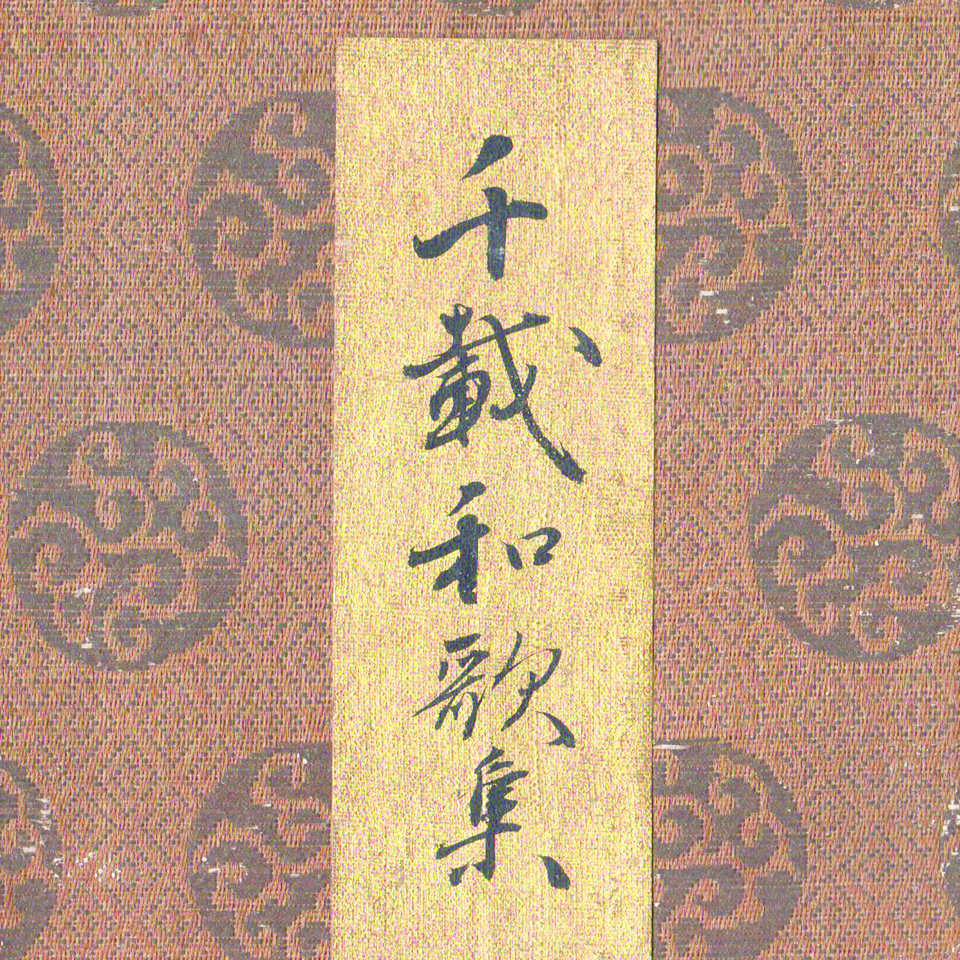 千載和歌集